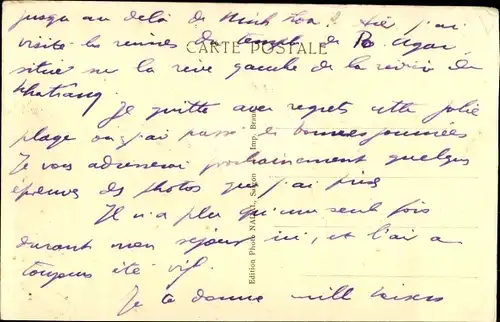 jusqu'au delà de Ninh Hoa. Hier j'ai
visité les ruines du temple de Po Nagar,
CARTE POSTALE
situé sur la rive gauche de la rivière de
Nhatrang.
Je quitte avec regrets cette jolie
plage où j'ai passé de bonnes journées
Je vous adresserai prochainement quelques
épreuves des photos que j'ai pris
Il n'a plu qu'une seule fois
durant mon séjour ici, et l'air a
toujours été vif.
Je te donne mille baisers
Edition Photo NADAL, Saigon Imp.